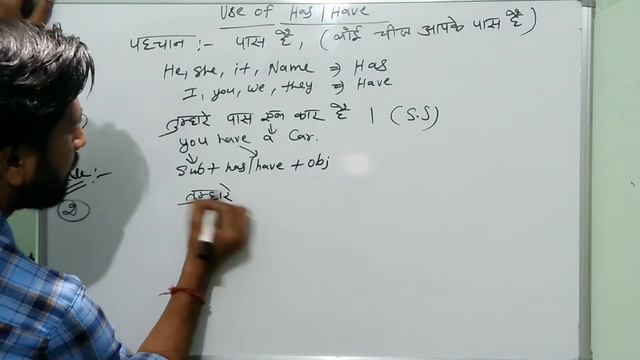 Use of Has | Have
पहचान :- पास है, (कोई चीज आपके पास है)
He, she, it, Name ⇒ Has
I, you, we, they ⇒ Have
तुम्हारे पास एक कार है । (S.S)
you have a Car.
Sub + has/have + obj
:-
2
तुम्हारे